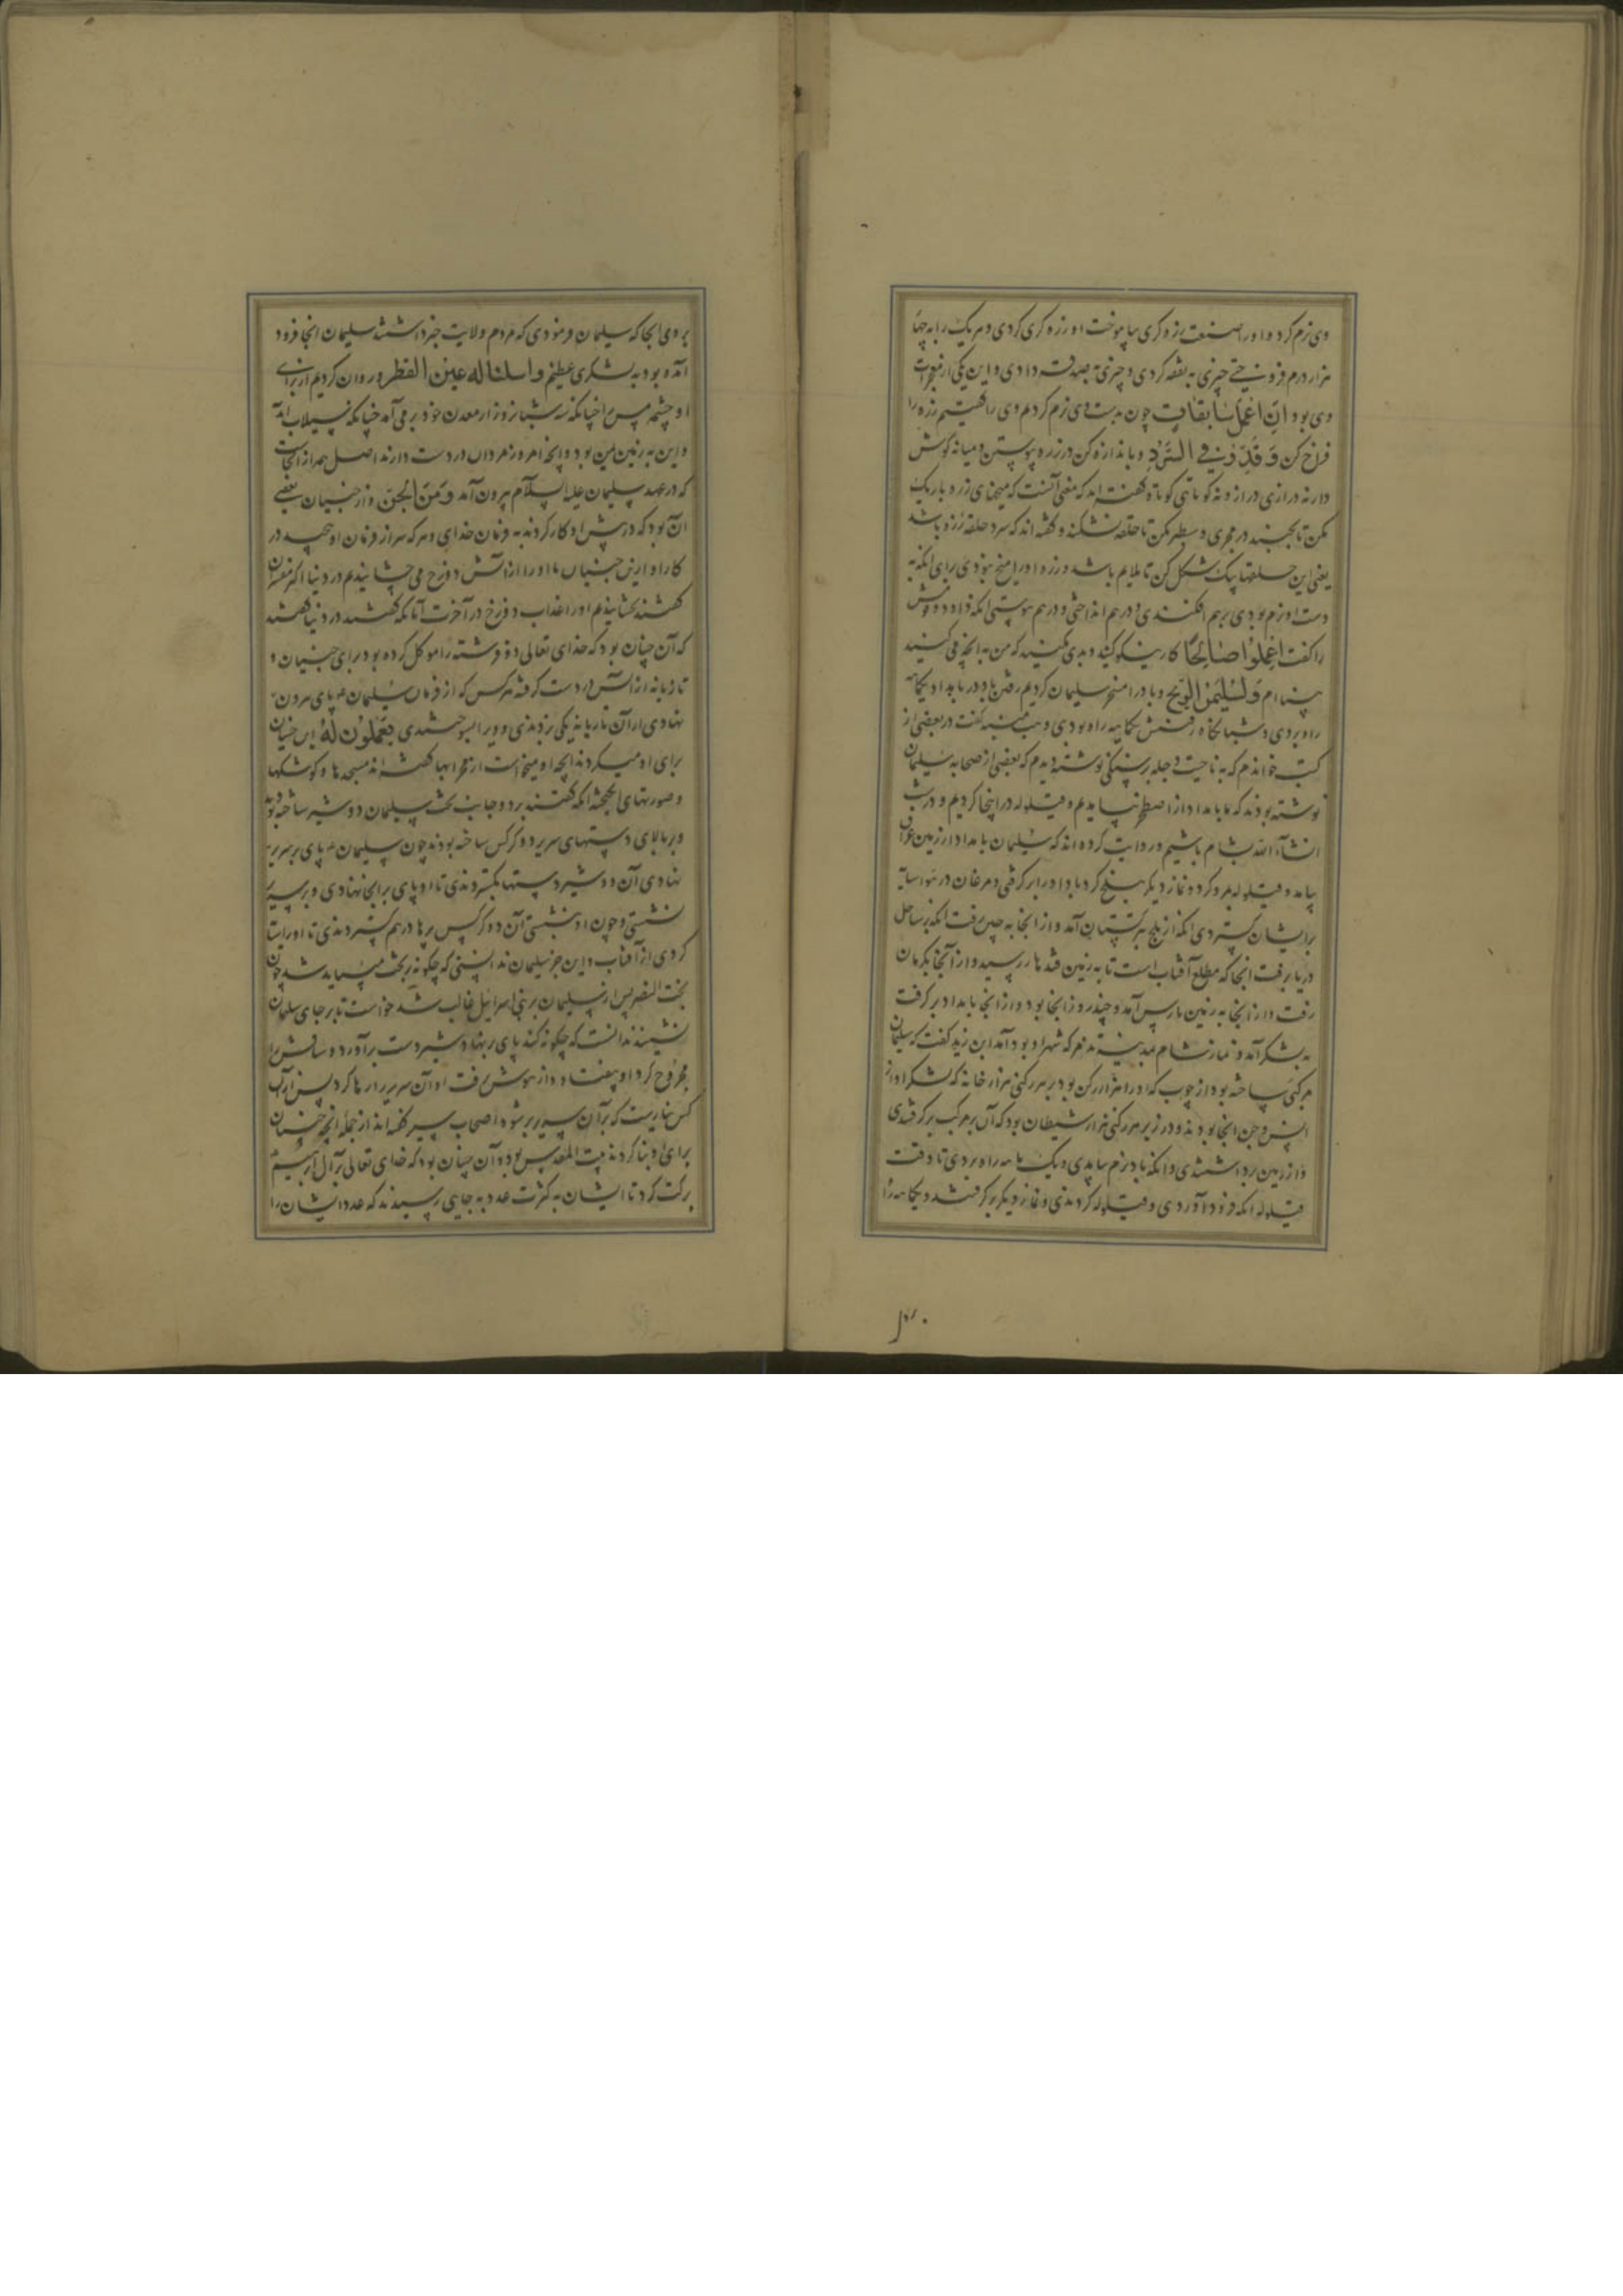 وی نرم کرد و او را صنعت زره کری بیاموخت او زره کری کردی و هر یک را به چهار
هزار درم فروختی چیزی به نفقه کردی و چیزی به صدقه دادی و این یکی از معجزات
وی بود ان اعمل سابغات چون بدست وی نرم کردیم وی را کفتیم زره را
فراخ کن وقدر فی السرد و باندازه کن در زره پیوستن و میانه کوش
دار نه درازی دراز و نه کوتاهی کوتاه کفته اند که معنی آنست که میخهای زره باریک
مکن تا بجنبد در مجری و سطبر مکن تا حلقه نشکند و کفته اند که سرد حلقه زره باشد
یعنی این حلقها یک شکل کن تا ملایم باشد و زره او را میخ نبودی برای آنکه به
دست او نرم بودی برهم افکندی و درهم انداختی و درهم پیوستی آنکه داود و قومش
را کفت اعملوا صالحا کار نیکو کنید و بدی مکنید که من به آنچه می کنید
بینا ام ولسلیمن الریح و باد را مسخر سلیمان کردیم رفتن باد در بامداد یکماهه
راه بردی و شبانکاه رفتنش یکماهه راه بودی وهب منبه کفت در بعضی از
کتب خواندم که به ناحیت دجله بر سنکی نوشته دیدم که بعضی از صحابه سلیمان
نوشته بودند که ما بامداد از اصطخر بیامدیم و قیلوله در اینجا کردیم و در شب
انشاء الله بشام باشیم و روایت کرده اند که سلیمان بامداد از زمین عراق
بیامد و قیلوله بمرو کرد و نماز دیکر ببلخ کرد باد او را بر کرفتی و مرغان در هوا سایه
بر ایشان کستردی آنکه از بلخ بترکستان آمد و از آنجا به چین رفت آنکه بر ساحل
دریا برفت آنجا که مطلع آفتاب است تا به زمین قندهار رسید و از آنجا بکرمان
رفت و از آنجا به زمین پارس آمد و چند روز آنجا بود و از آنجا بامداد بر کرفت
به لشکر آمد و نماز شام بمدینه تدمر که شهر او بود آمد ابن زید کفت که سلیمان
مرکبی ساخته بود از چوب که او را هزار رکن بود بر هر رکنی هزار خانه که لشکر او از
انس و جن آنجا بودند و در زیر هر رکنی هزار شیطان بود که آن مرکب بر کرفتندی
و از زمین برداشتندی و آنکه باد نرم بیامدی و یک ماهه راه بردی تا وقت
قیلوله آنکه فرود آوردی و قیلوله کردندی و نماز دیکر بر کرفتند و یکماهه راه
بردی آنجا که سلیمان فرمودی که مردم ولایت خبر داشتند سلیمان آنجا فرود
آمده بود به لشکری عظیم واسلنا له عین القطر و روان کردیم از برای
او چشمه مس را چنانکه سه شبانروز از معدن خود بر می آمد چنانکه سیلاب آید
و این به زمین یمن بود و آنچه امروز مردمان در دست دارند اصل همه از آنجاست
که در عهد سلیمان علیه السلام بیرون آمد ومن الجن و از جنیان بعضی
آن بود که در پیش او کار کردند به فرمان خدای و هر که سر از فرمان او بپیچید در
کار او از این جنیان ما او را از آتش دوزخ می چشانیدیم در دنیا اکثر مفسران
کفتند بچشانیدیم او را عذاب دوزخ در آخرت آنانکه کفتند در دنیا کفتند
که آن چنان بود که خدای تعالی دو فرشته را موکل کرده بود برای جنیان و
تازیانه از آتش در دست کرفته هر کس که از فرمان سلیمان ع پای بیرون
نهادی از آن تازیانه یکی بزدندی و وی را بسوختندی یعملون له این جنیان
برای او میکردند آنچه او میخواست از محرابها کفته اند مسجدها و کوشکها
و صورتهای انکیخته آنکه کفتند بر دو جانب تخت سلیمان دو شیر ساخته بودند
و بر بالای دستهای سریر دو کرکس ساخته بودند چون سلیمان ع پای بر سریر
نهادی آن دو شیر دستها بکستردندی تا او پای بر آنجا نهادی و بر سریر
نشستی و چون او بنشستی آن دو کرکس پرها درهم کستردندی تا او را سایه
کردی از آفتاب و این جز سلیمان ندانستی که چکونه بر تخت میباید شد چون
بخت النصر پس از سلیمان بر بنی اسرائیل غالب شد خواست تا بر جای سلیمان
نشیند ندانست که چکونه کند پای بر نهاد شیر دست برآورد و ساقش را
مجروح کرد او بیفتاد و از هوش برفت او آن سریر را رها کرد پس از آن
کس نیارست که بر آن سریر بر شود اصحاب سیر کفته اند از جمله آنچه جنیان
برای او بنا کردند بیت المقدس بود و آن چنان بود که خدای تعالی بر آل ابرهیم
برکت کرد تا ایشان به کثرت عدد به جایی رسیدند که عدد ایشان را